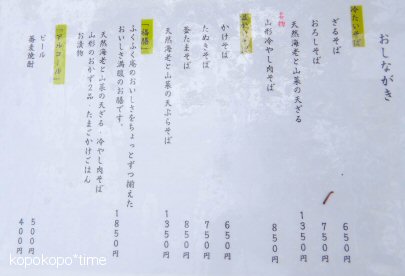 おしながき
冷たいそば
ざるそば 650円
おろしそば 750円
天然海老と山菜の天ざる 1350円
名物
山形冷やし肉そば 850円
温かいそば
かけそば 650円
たぬきそば 750円
釜たまそば 850円
天然海老と山菜の天ぷらそば 1350円
「福膳」
ふくふく庵のおいしさをちょっとずつ揃えた
おいしさ満腹のお膳です。
天然海老と山菜の天ざる・冷やし肉そば
山形のおかず2品 たまごかけごはん
お漬物 1850円
「アルコール」
ビール 500円
蕎麦焼酎 400円
kopokopo*time